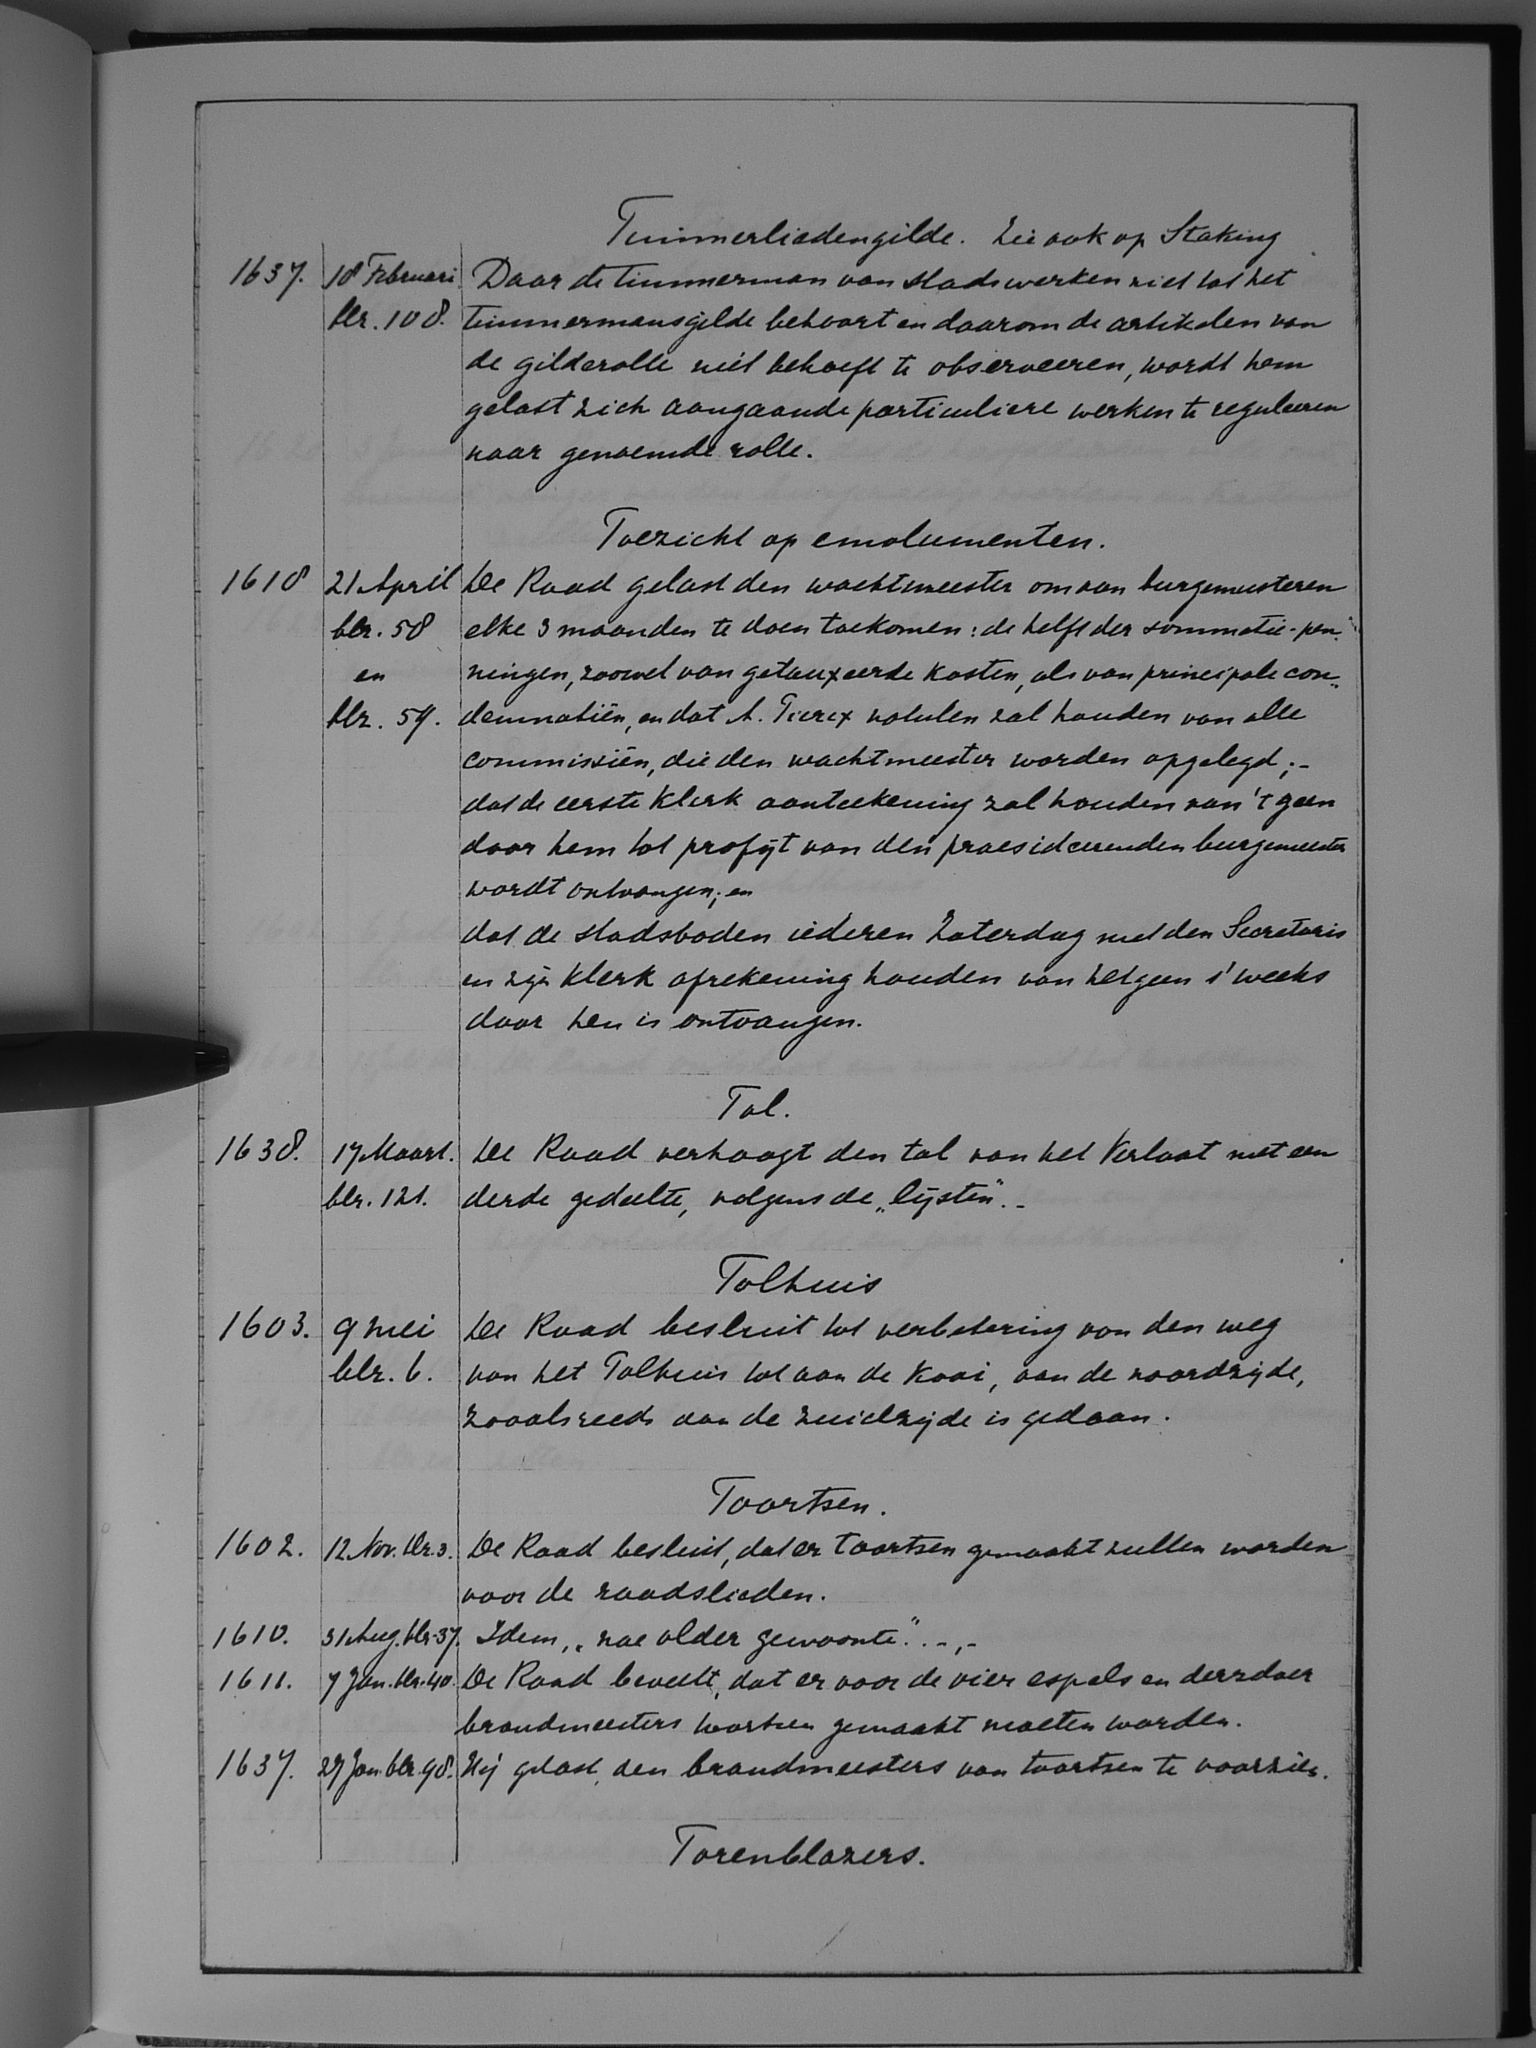 Timmerliedengilde. Zie ook op Staking
1637. 18 Februari Daar de timmerman van stadswerken niet tot het
blz. 108. timmermansgilde behoort en daarom de artikelen van
de gilderolle niet behoeft te observeeren, wordt hem
gelast zich aangaande particuliere werken te reguleeren
naar genoemde rolle.
Toezicht op emolumenten.
1618 21 April De Raad gelast den wachtmeester om aan burgemeesteren
blz. 58 elke 3 maanden te doen toekomen: de helft der sommatie-pen-
en ningen, zoowel van getauxeerde kosten, als van principale con-
blz. 59. demnatiën, en dat A. Tierex notulen zal houden van alle
commissiën, die den wachtmeester worden opgelegd;-
dat de eerste klerk aanteekening zal houden van 't geen
door hem tot profijt van den praesideerenden burgemeester
wordt ontvangen; en
dat de stadsboden iederen Zaterdag met den Secretaris
en zijn klerk afrekening houden van hetgeen s' weeks
door hen is ontvangen.
Tol.
1638. 17 Maart. De Raad verhoogt den tol van het Verlaat met een
blz. 121. derde gedeelte, volgens de „lijsten".-
Tolhuis
1603. 9 Mei De Raad besluit tot verbetering van den weg
blz. 6. van het Tolhuis tot aan de Kooi, aan de noordzijde,
zooals reeds aan de zuidzijde is gedaan.
Toortsen.
1602. 12 Nov. blz. 3. De Raad besluit, dat er toortsen gemaakt zullen worden
voor de raadslieden.
1610. 31 Aug. blz. 37. Idem, „nae older gewoonte".-,-
1611. 7 Jan. blz. 40. De Raad beveelt, dat er voor de vier espels en derzelver
brandmeesters toortsen gemaakt moeten worden.
1637. 27 Jan. blz. 98. Hij gelast, den brandmeesters van toortsen te voorzien.
Torenblazers.